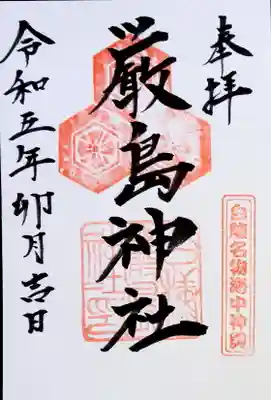 奉拝
厳島神社
令和五年卯月吉日